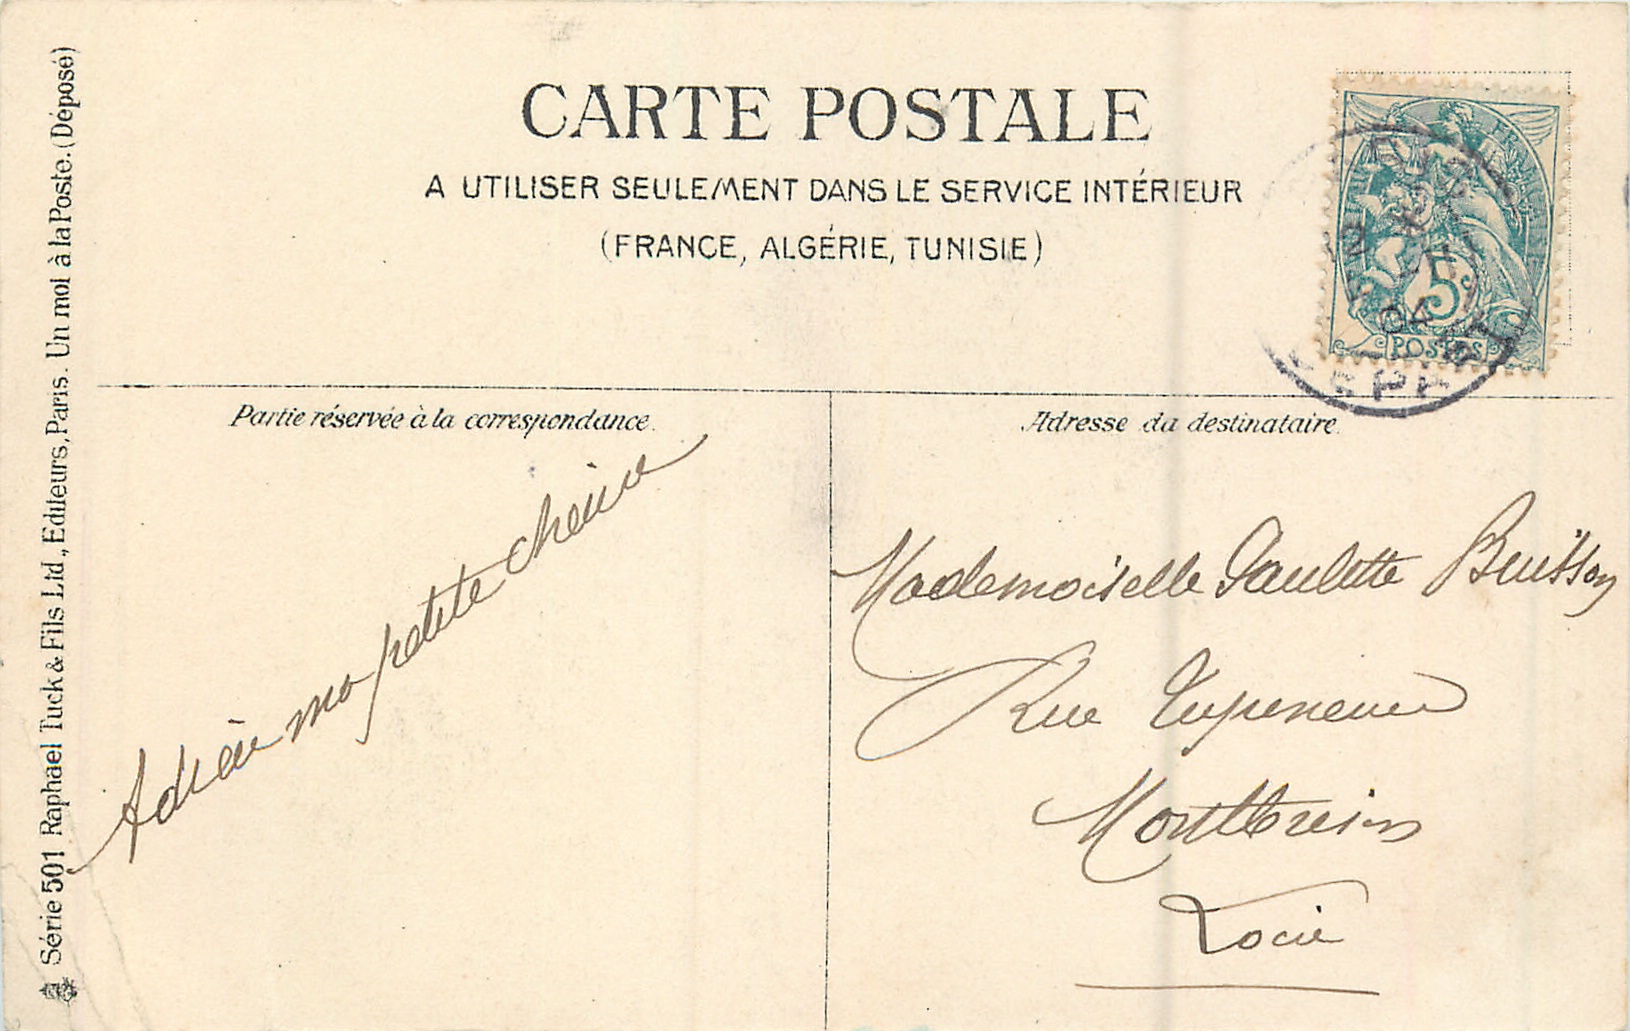 CARTE POSTALE
A UTILISER SEULEMENT DANS LE SERVICE INTÉRIEUR
(FRANCE, ALGÉRIE, TUNISIE)
Série 501 Raphael Tuck & Fils Ltd., Editeurs, Paris. Un mot à la Poste. (Déposé)
Partie réservée à la correspondance.
Adieu ma petite chérie
Adresse du destinataire.
Mademoiselle Paulette Buisson
Rue Tupinerie
Montbrison
Loire
5c
POSTES
04